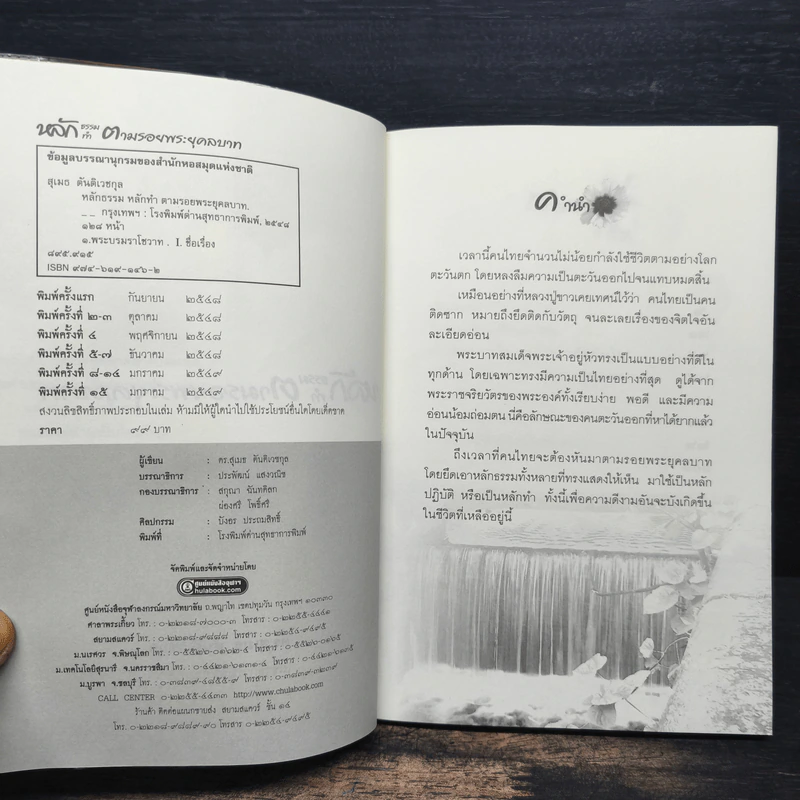 หลัก ธรรม ทำ ตามรอยพระยุคลบาท
ข้อมูลบรรณานุกรมของสำนักหอสมุดแห่งชาติ
สุเมธ ตันติเวชกุล
หลักธรรม หลักทำ ตามรอยพระยุคลบาท.
_ _ กรุงเทพฯ : โรงพิมพ์ด่านสุทธาการพิมพ์, ๒๕๔๘
๑๒๘ หน้า
๑.พระบรมราโชวาท . I. ชื่อเรื่อง
๘๙๕.๙๑๕
ISBN ๙๗๔-๖๑๙-๑๔๖-๒
พิมพ์ครั้งแรก กันยายน ๒๕๔๘
พิมพ์ครั้งที่ ๒-๓ ตุลาคม ๒๕๔๘
พิมพ์ครั้งที่ ๔ พฤศจิกายน ๒๕๔๘
พิมพ์ครั้งที่ ๕-๗ ธันวาคม ๒๕๔๘
พิมพ์ครั้งที่ ๘-๑๔ มกราคม ๒๕๔๙
พิมพ์ครั้งที่ ๑๕ มกราคม ๒๕๔๙
สงวนลิขสิทธิ์ภาพประกอบในเล่ม ห้ามมิให้ผู้ใดนำไปใช้ประโยชน์อื่นใดโดยเด็ดขาด
ราคา ๙๙ บาท
ผู้เขียน : ดร.สุเมธ ตันติเวชกุล
บรรณาธิการ : ประพัฒน์ แสงวณิช
กองบรรณาธิการ : สกุณา ฉันทดิลก
ผ่องศรี โพธิ์ศรี
ศิลปกรรม : บังอร ประถมสิทธิ์
พิมพ์ที่ : โรงพิมพ์ด่านสุทธาการพิมพ์
จัดพิมพ์และจัดจำหน่ายโดย
ศูนย์หนังสือจุฬาฯ
chulabook.com
ศูนย์หนังสือจุฬาลงกรณ์มหาวิทยาลัย ถ.พญาไท เขตปทุมวัน กรุงเทพฯ ๑๐๓๓๐
ศาลาพระเกี้ยว โทร. : ๐-๒๒๑๘-๗๐๐๐-๓ โทรสาร : ๐-๒๒๕๕-๔๔๔๑
สยามสแควร์ โทร. : ๐-๒๒๑๘-๙๘๘๘ โทรสาร : ๐-๒๒๕๔-๙๔๙๕
ม.นเรศวร จ.พิษณุโลก โทร. : ๐-๕๕๒๖-๐๑๖๒-๔ โทรสาร : ๐-๕๕๒๖-๐๑๖๕
ม.เทคโนโลยีสุรนารี จ.นครราชสีมา โทร. : ๐-๔๔๒๑-๖๑๓๑-๔ โทรสาร : ๐-๔๔๒๑-๖๑๓๕
ม.บูรพา จ.ชลบุรี โทร. : ๐-๓๘๓๙-๔๘๕๕-๙ โทรสาร : ๐-๓๘๓๙-๓๒๓๙
CALL CENTER ๐-๒๒๕๕-๔๔๓๓ http://www.chulabook.com
ร้านค้า ติดต่อแผนกขายส่ง สยามสแควร์ ชั้น ๑๔
โทร. ๐-๒๒๑๘-๙๘๘๙-๙๐ โทรสาร ๐-๒๒๕๔-๙๔๙๕
คำนำ
เวลานี้คนไทยจำนวนไม่น้อยกำลังใช้ชีวิตตามอย่างโลก
ตะวันตก โดยหลงลืมความเป็นตะวันออกไปจนแทบหมดสิ้น
เหมือนอย่างที่หลวงปู่ขาวเคยเทศน์ไว้ว่า คนไทยเป็นคน
ติดซาก หมายถึงยึดติดกับวัตถุ จนละเลยเรื่องของจิตใจอัน
ละเอียดอ่อน
พระบาทสมเด็จพระเจ้าอยู่หัวทรงเป็นแบบอย่างที่ดีใน
ทุกด้าน โดยเฉพาะทรงมีความเป็นไทยอย่างที่สุด ดูได้จาก
พระราชจริยวัตรของพระองค์ทั้งเรียบง่าย พอดี และมีความ
อ่อนน้อมถ่อมตน นี่คือลักษณะของคนตะวันออกที่หาได้ยากแล้ว
ในปัจจุบัน
ถึงเวลาที่คนไทยจะต้องหันมาตามรอยพระยุคลบาท
โดยยึดเอาหลักธรรมทั้งหลายที่ทรงแสดงให้เห็น มาใช้เป็นหลัก
ปฏิบัติ หรือเป็นหลักทำ ทั้งนี้เพื่อความดีงามอันจะบังเกิดขึ้น
ในชีวิตที่เหลืออยู่นี้